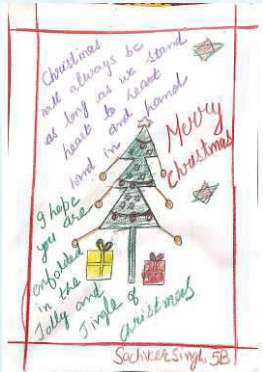 Christmas
will always be
as long as we stand
heart to heart
and hand
hand in
Merry
Christmas
I hope
you are
enfolded
in the
Jolly and
Jingle of
Christmas
Singh 5B